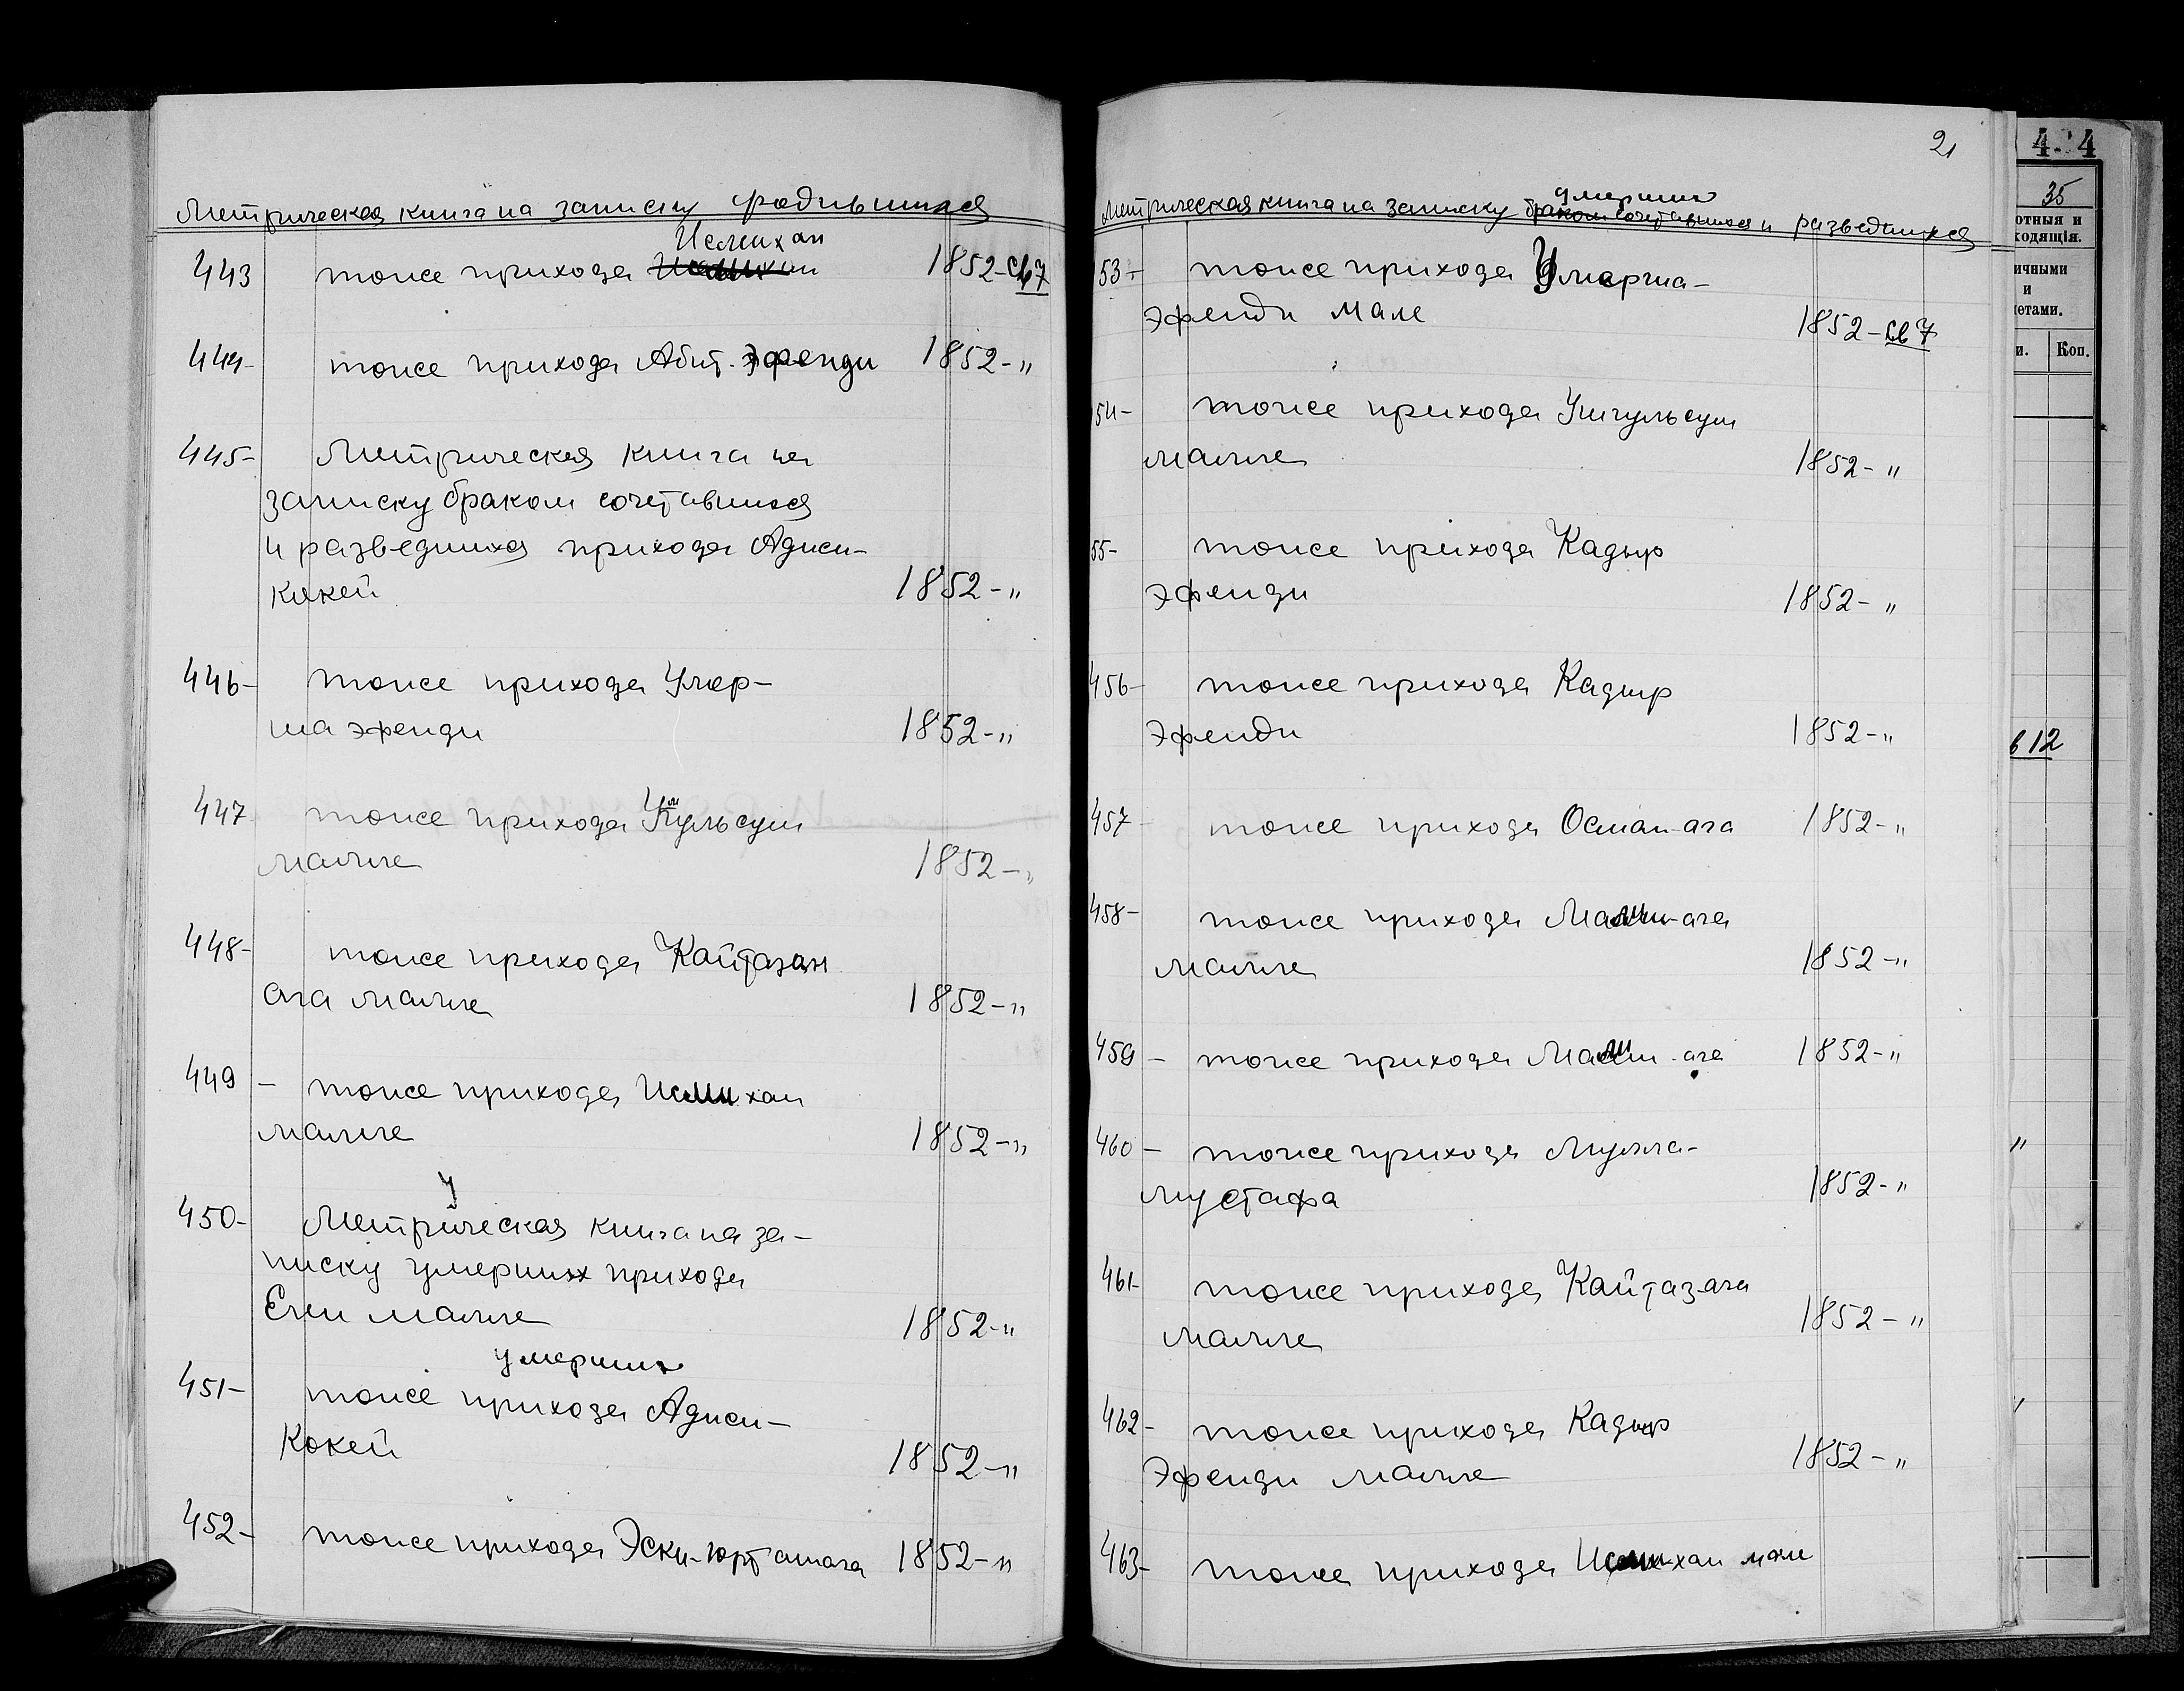 Метрическая книга на записку родившихся
Исмихан
443 тоже прихода Исмихан 1852-св 7
444- тоже прихода Абит. эфенди 1852-"
445- Метрическая книга на
записку браком сочетавшихся
и разведшихся прихода Аджи-
Кокей 1852-"
446- тоже прихода Умер-
ша эфенди 1852-"
447 тоже прихода Умкульсум
малле 1852-"
448- тоже прихода Кайтазан
ага малле 1852-"
449 - тоже прихода Исмихан
малле 1852-"
450- Метрическая книга на за-
писку умерших прихода
Ени малле 1852-"
умерших
451- тоже прихода Аджи-
Кокей 1852-"
452- тоже прихода Эски-юрт ашага 1852-"
21
умерших
Метрическая книга на записку браком сочетавшихся и разведшихся
53- тоже прихода Умерша-
эфенди мале 1852-св 7
54- тоже прихода Умгульсум
малле 1852-"
55- тоже прихода Кадыр
эфенди 1852-"
456- тоже прихода Кадыр
эфенди 1852-"
457- тоже прихода Осман-ага 1852-"
458- тоже прихода -ага
малле 1852-"
459 - тоже прихода -ага 1852-"
460 - тоже прихода Мулла-
мустафа 1852-"
461- тоже прихода Кайтаз-ага
малле 1852-"
462- тоже прихода Кадыр
Эфенди малле 1852-"
463- тоже прихода Исмихан мале
4 4
35
отныя и
ходящія.
ичными
и
етами.
и. Коп.
в 12
"